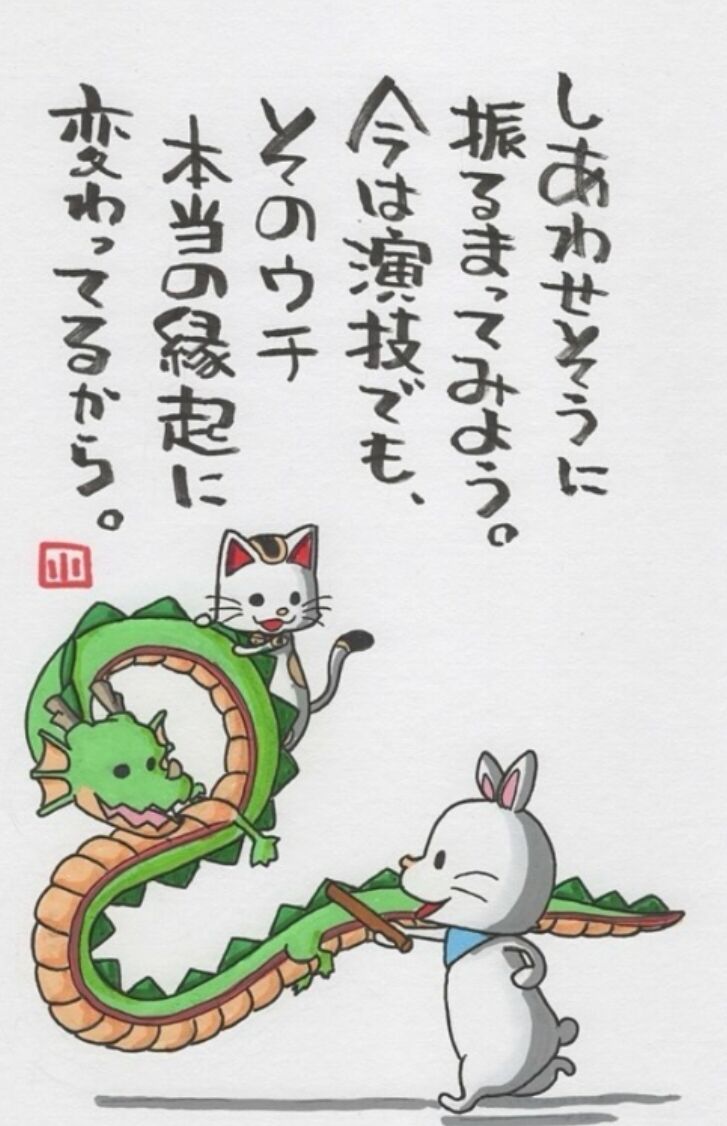 しあわせそうに
振るまってみよう。
今は演技でも、
そのウチ
本当の縁起に
変わってるから。